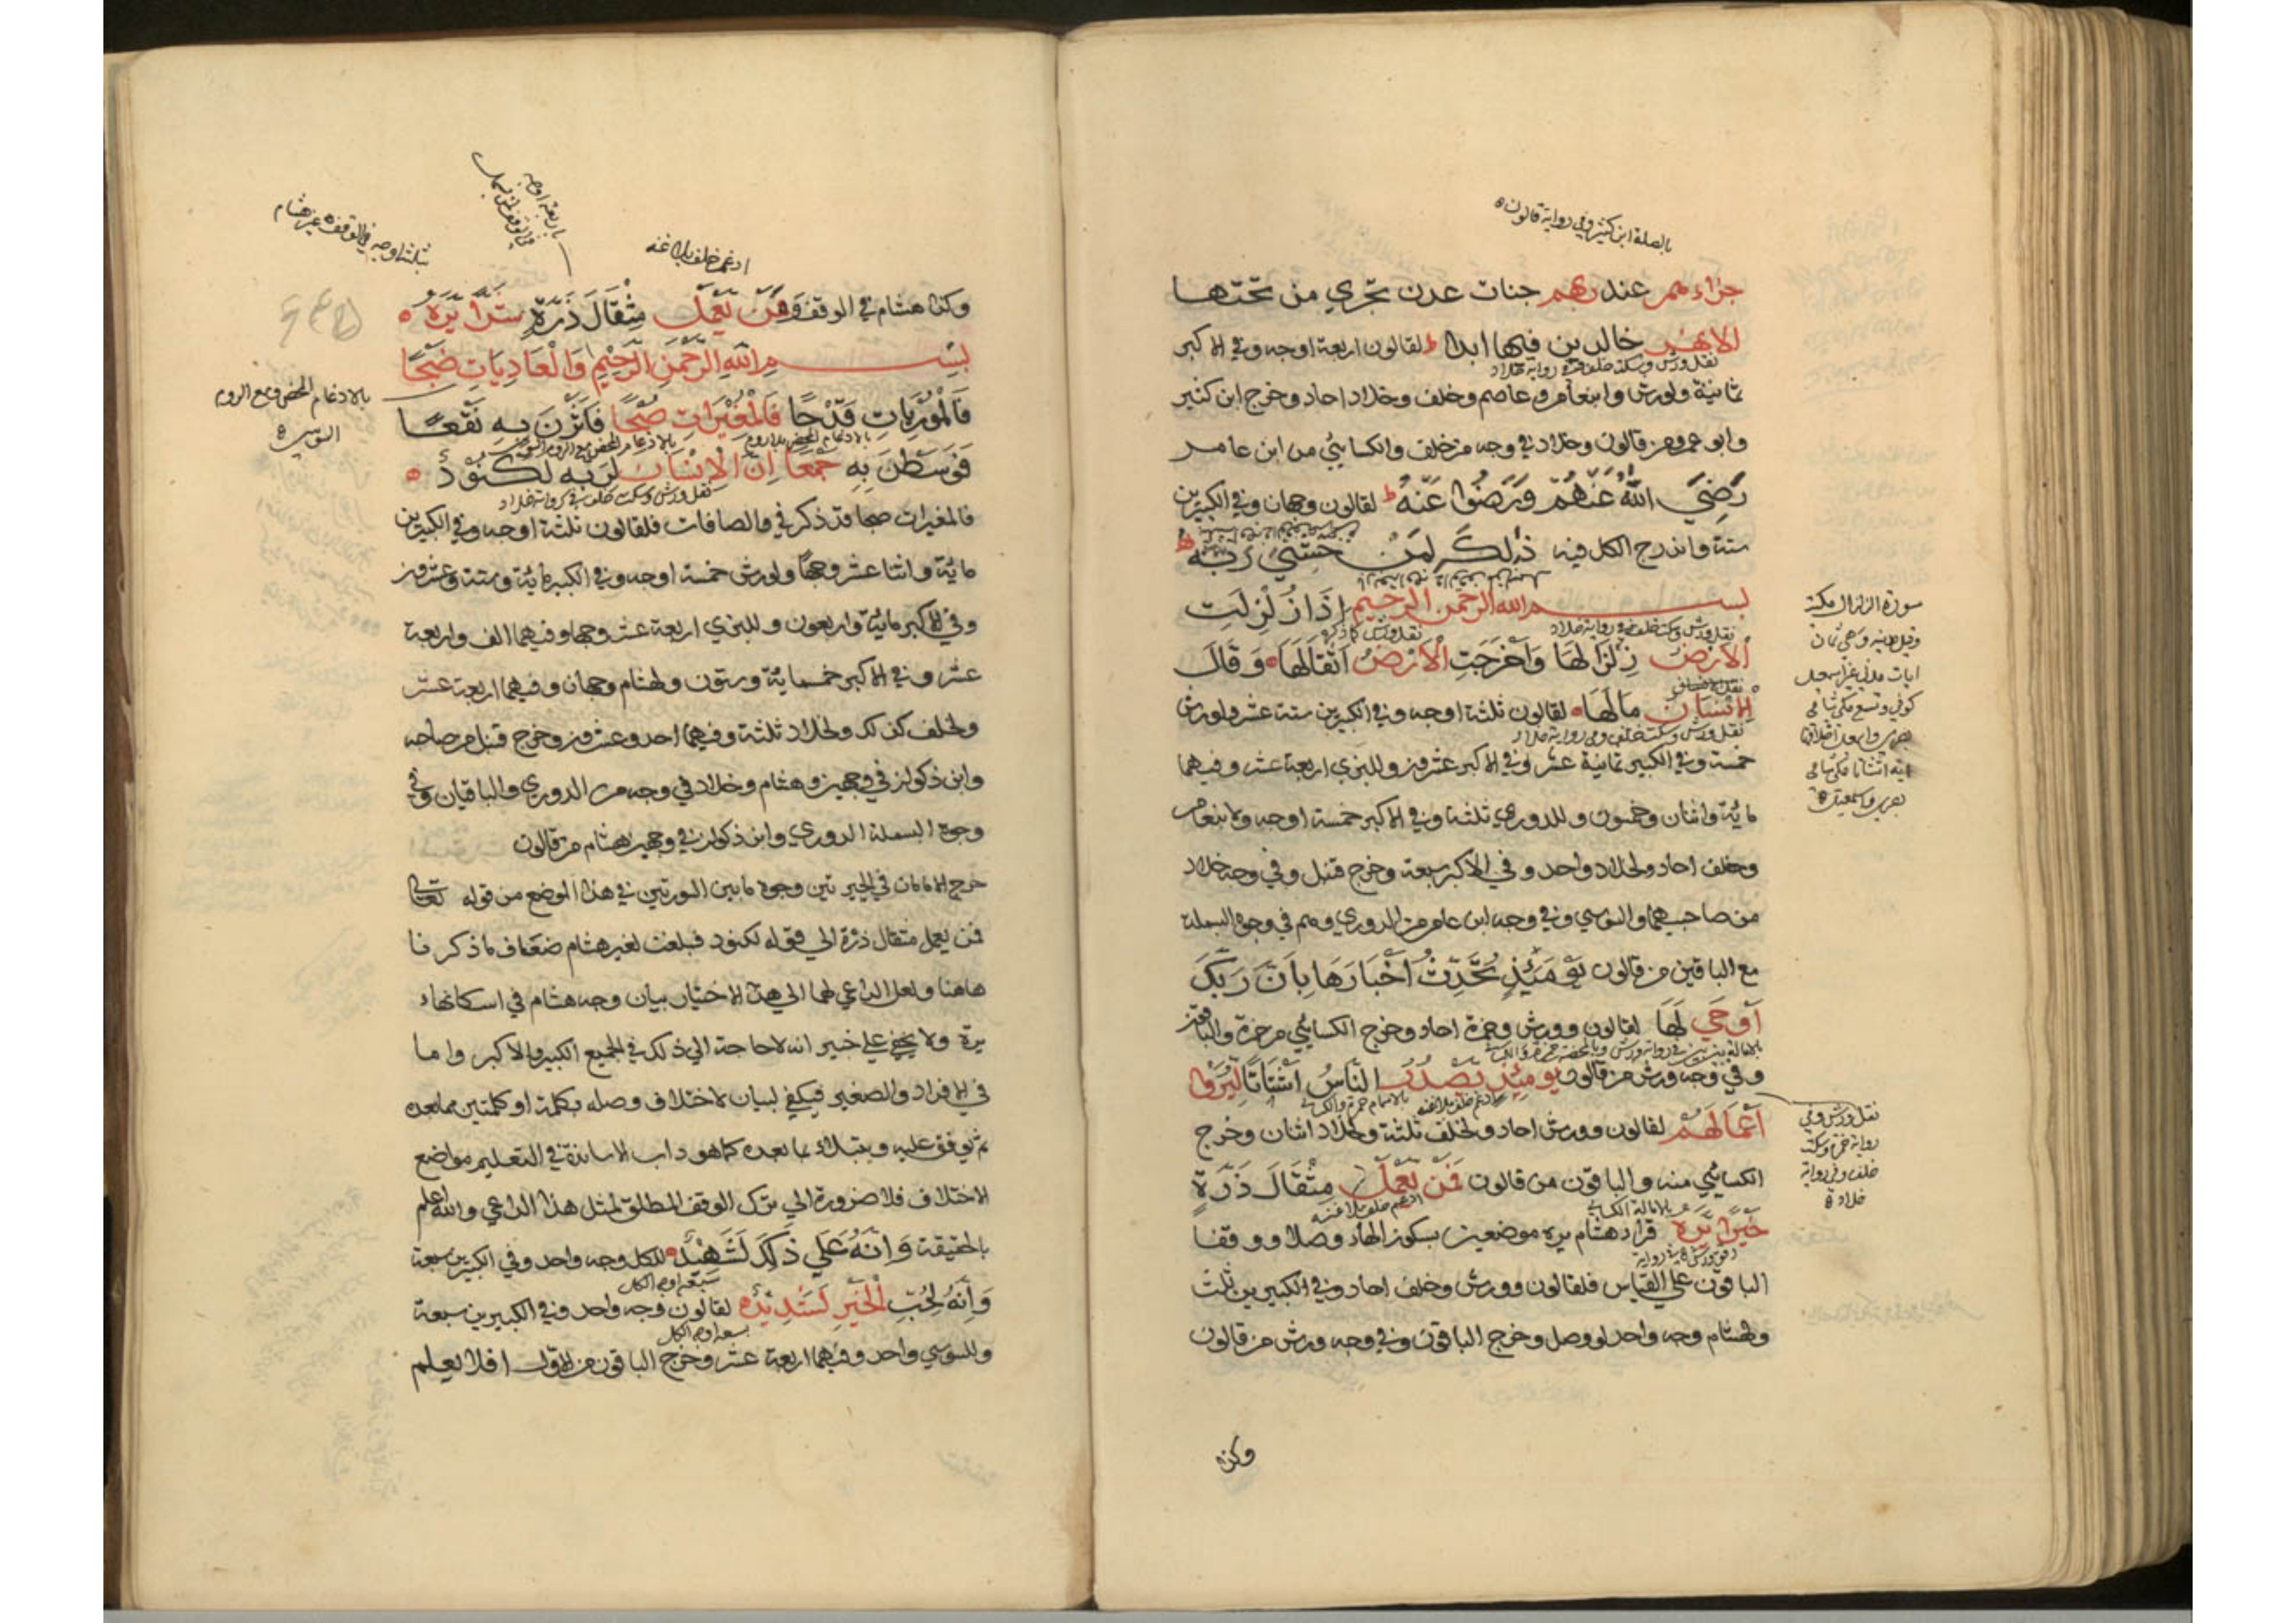 بالصلة ابن كثير وفي رواية قالون
جزاءهم عند ربهم جنات عدن تجري من تحتها
الانهر خالدين فيها ابدا ط لقالون اربعة اوجه وفي الاكبر
نقل ورش وسكت خلف وفي رواية خلاد
ثمانية ولورش وابنعامر وعاصم وخلف وخلاد احاد وخرج ابن كثير
وابو عمرو من قالون وخلاد في وجه من خلف والكسائي من ابن عامر
رَضِيَ اللهُ عَنْهُمْ وَرَضُوا عَنْهُ ط لقالون وجهان وفي الكبيرين
ستة واندرج الكل فيه ذٰلِكَ لِمَنْ خَشِيَ رَبَّهُ ط
بسم الله الرحمن الرحيم اِذَا زُلْزِلَتِ
نقل ورش وسكت خلف وفي رواية خلاد
نقل ورش كما ذكر
الْاَرْضُ زِلْزَالَهَا وَاَخْرَجَتِ الْاَرْضُ اَثْقَالَهَا وَقَالَ
الْاِنْسَانُ مَالَهَا لقالون ثلثة اوجه وفي الكبيرين ستة عشر ولورش
نقل ورش وسكت خلف وفي رواية خلاد
خمسة وفي الكبير ثمانية عشر وفي الاكبر عشرون وللبزي اربعة عشر وفيهما
مائة واثنان وخمسون وللدوري ثلثة وفي الاكبر خمسة اوجه ولابنعامر
وخلف احاد ولخلاد واحد وفي الاكبر سبعة وخرج قنبل وفي وجه خلاد
من صاحبهما والسوسي وفي وجه ابن عامر من الدوري وهم في وجوه البسملة
مع الباقين من قالون يَوْمَئِذٍ تُحَدِّثُ اَخْبَارَهَا بِاَنَّ رَبَّكَ
اَوْحَى لَهَا لقالون وورش وحمزة احاد وخرج الكسائي من حمزة والباقون
وفي وجه ورش من قالون يومئذ يَصْدُرُ النَّاسُ اَشْتَاتًا لِيُرَوْا
ادغم خلف بلا غنه بالاشمام حمزة والكسائي
اَعْمَالَهُمْ لقالون وورش احاد ولخلف ثلثة ولخلاد اثنان وخرج
الكسائي منه والباقون من قالون فَمَنْ يَعْمَلْ مِثْقَالَ ذَرَّةٍ
ادغم خلف بلا غنه
خَيْرًا يَرَه قراء هشام يره موضعين بسكون الهاء وصلا ووقفا
الباقون علي القياس فلقالون وورش وخلف احاد وفي الكبيرين ثلث
ولهشام وجه واحد لو وصل وخرج الباقون وفي وجه ورش من قالون
وكذا
سورة الزلزال مكية
وقيل مدنيه وهي ثمان
ايات مدني غير اسمعيل
كوفي وتسع مكي شامي
بصري واسمعيل اختلافها
ايه اشتاتا مكي شامي
بصري واسمعيل
نقل ورش وفي
رواية حمزة وسكت
خلف وفي رواية
خلاد
ادغم خلف بلا غنه
بثلثة اوجه في الوقف غير هشام
وكذا هشام في الوقف وَمَنْ يَعْمَلْ مِثْقَالَ ذَرَّةٍ شَرًّا يَرَهُ
بسم اللهِ الرَّحْمٰنِ الرَّحِيْمِ وَالْعَادِيَاتِ ضَبْحًا
فَالْمُوْرِيَاتِ قَدْحًا فَالْمُغِيْرَاتِ صُبْحًا فَاَثَرْنَ بِهِ نَقْعًا
فَوَسَطْنَ بِهِ جَمْعًا اِنَّ الْاِنْسَانَ لِرَبِّهِ لَكَنُوْدٌ
نقل ورش وسكت خلف وفي رواية خلاد
فالمغيرات صبحا قد ذكر في والصافات فلقالون ثلثة اوجه وفي الكبيرين
مائة واثنا عشر وجها ولورش خمسة اوجه وفي الكبير مائة وستة وعشرون
وفي الاكبر مائة واربعون وللبزي اربعة عشر وجها وفيهما الف واربعة
عشر وفي الاكبر خمسمائة وستون ولهشام وجهان وفيهما اربعة عشر
ولخلف كذلك ولخلاد ثلثة وفيهما احد وعشرون وخرج قنبل من صاحبه
وابن ذكوان في وجهين وهشام وخلاد في وجه من الدوري والباقيان وفي
وجوه البسملة الدوري وابن ذكوان في وجهين لهشام من قالون
خرج الامامان في الجيرتين وجوه مابين السورتين في هذا الموضع من قوله تعالى
فمن يعمل مثقال ذرة الي قوله لكنود فبلغت لغير هشام ضعاف ماذكرنا
هاهنا ولعل الداعي لهما الي هذا الاختيار بيان وجه هشام في اسكانهاء
يره ولا يخفي علي خبير انه لاحاجة الي ذلك في الجميع الكبير والاكبر واما
في الافراد والصغير فيكفي لبيان الاختلاف وصله بكلمة او كلمتين مما بعده
ثم يوقف عليه ويبتداء بما بعده كما هو داب الاساتذة في التعليم مواضع
الاختلاف فلا ضرورة الي ترك الوقف المطلق لمثل هذا الداعي والله اعلم
بالحقيقة وَاِنَّهُ عَلَي ذٰلِكَ لَشَهِيْدٌ للكل وجه واحد وفي الكبيرين سبعة
سبعة اوجه الكل
وَاِنَّهُ لِحُبِّ الْخَيْرِ لَشَدِيْدٌ لقالون وجه واحد وفي الكبيرين سبعة
سبعة اوجه الكل
وللسوسي واحد وفيهما اربعة عشر وخرج الباقون من الاول افلا يعلم
بالادغام المحض ومع الروم
السوسي